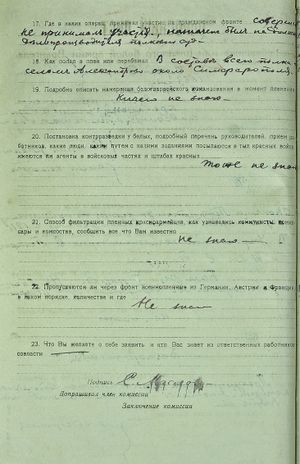 17. Где и в каких операц. принимал участие на гражданском фронте
не принимал участия, назначен был
18. Как попал в плен или перебежал. В составе всего полка
около Симферополя.
19. Подробно описать намерения белогвардейского командования в момент
Ничего не знаю.
20. Постановка контрразведки у белых, подробный перечень руководителей,
ботников, какие люди, каким путем с какими заданиями посылаются в тыл красных войск
имеются ли агенты в войсковых частях и штабах красных.
Тоже не знаю
21. Способ фильтрации пленных красноармейцев, как узнавались коммунисты,
сары и комсостав, сообщить все что Вам известно
не знаю
22. Пропускаются ли через фронт военнопленные из Германии, Австрии и Франции
в каком порядке, количестве и где
Не знаю
23. Что Вы желаете о себе заявить и кто Вас знает из ответственных работников
совласти
Подпись
Допрашивал член комиссии
Заключение комиссии